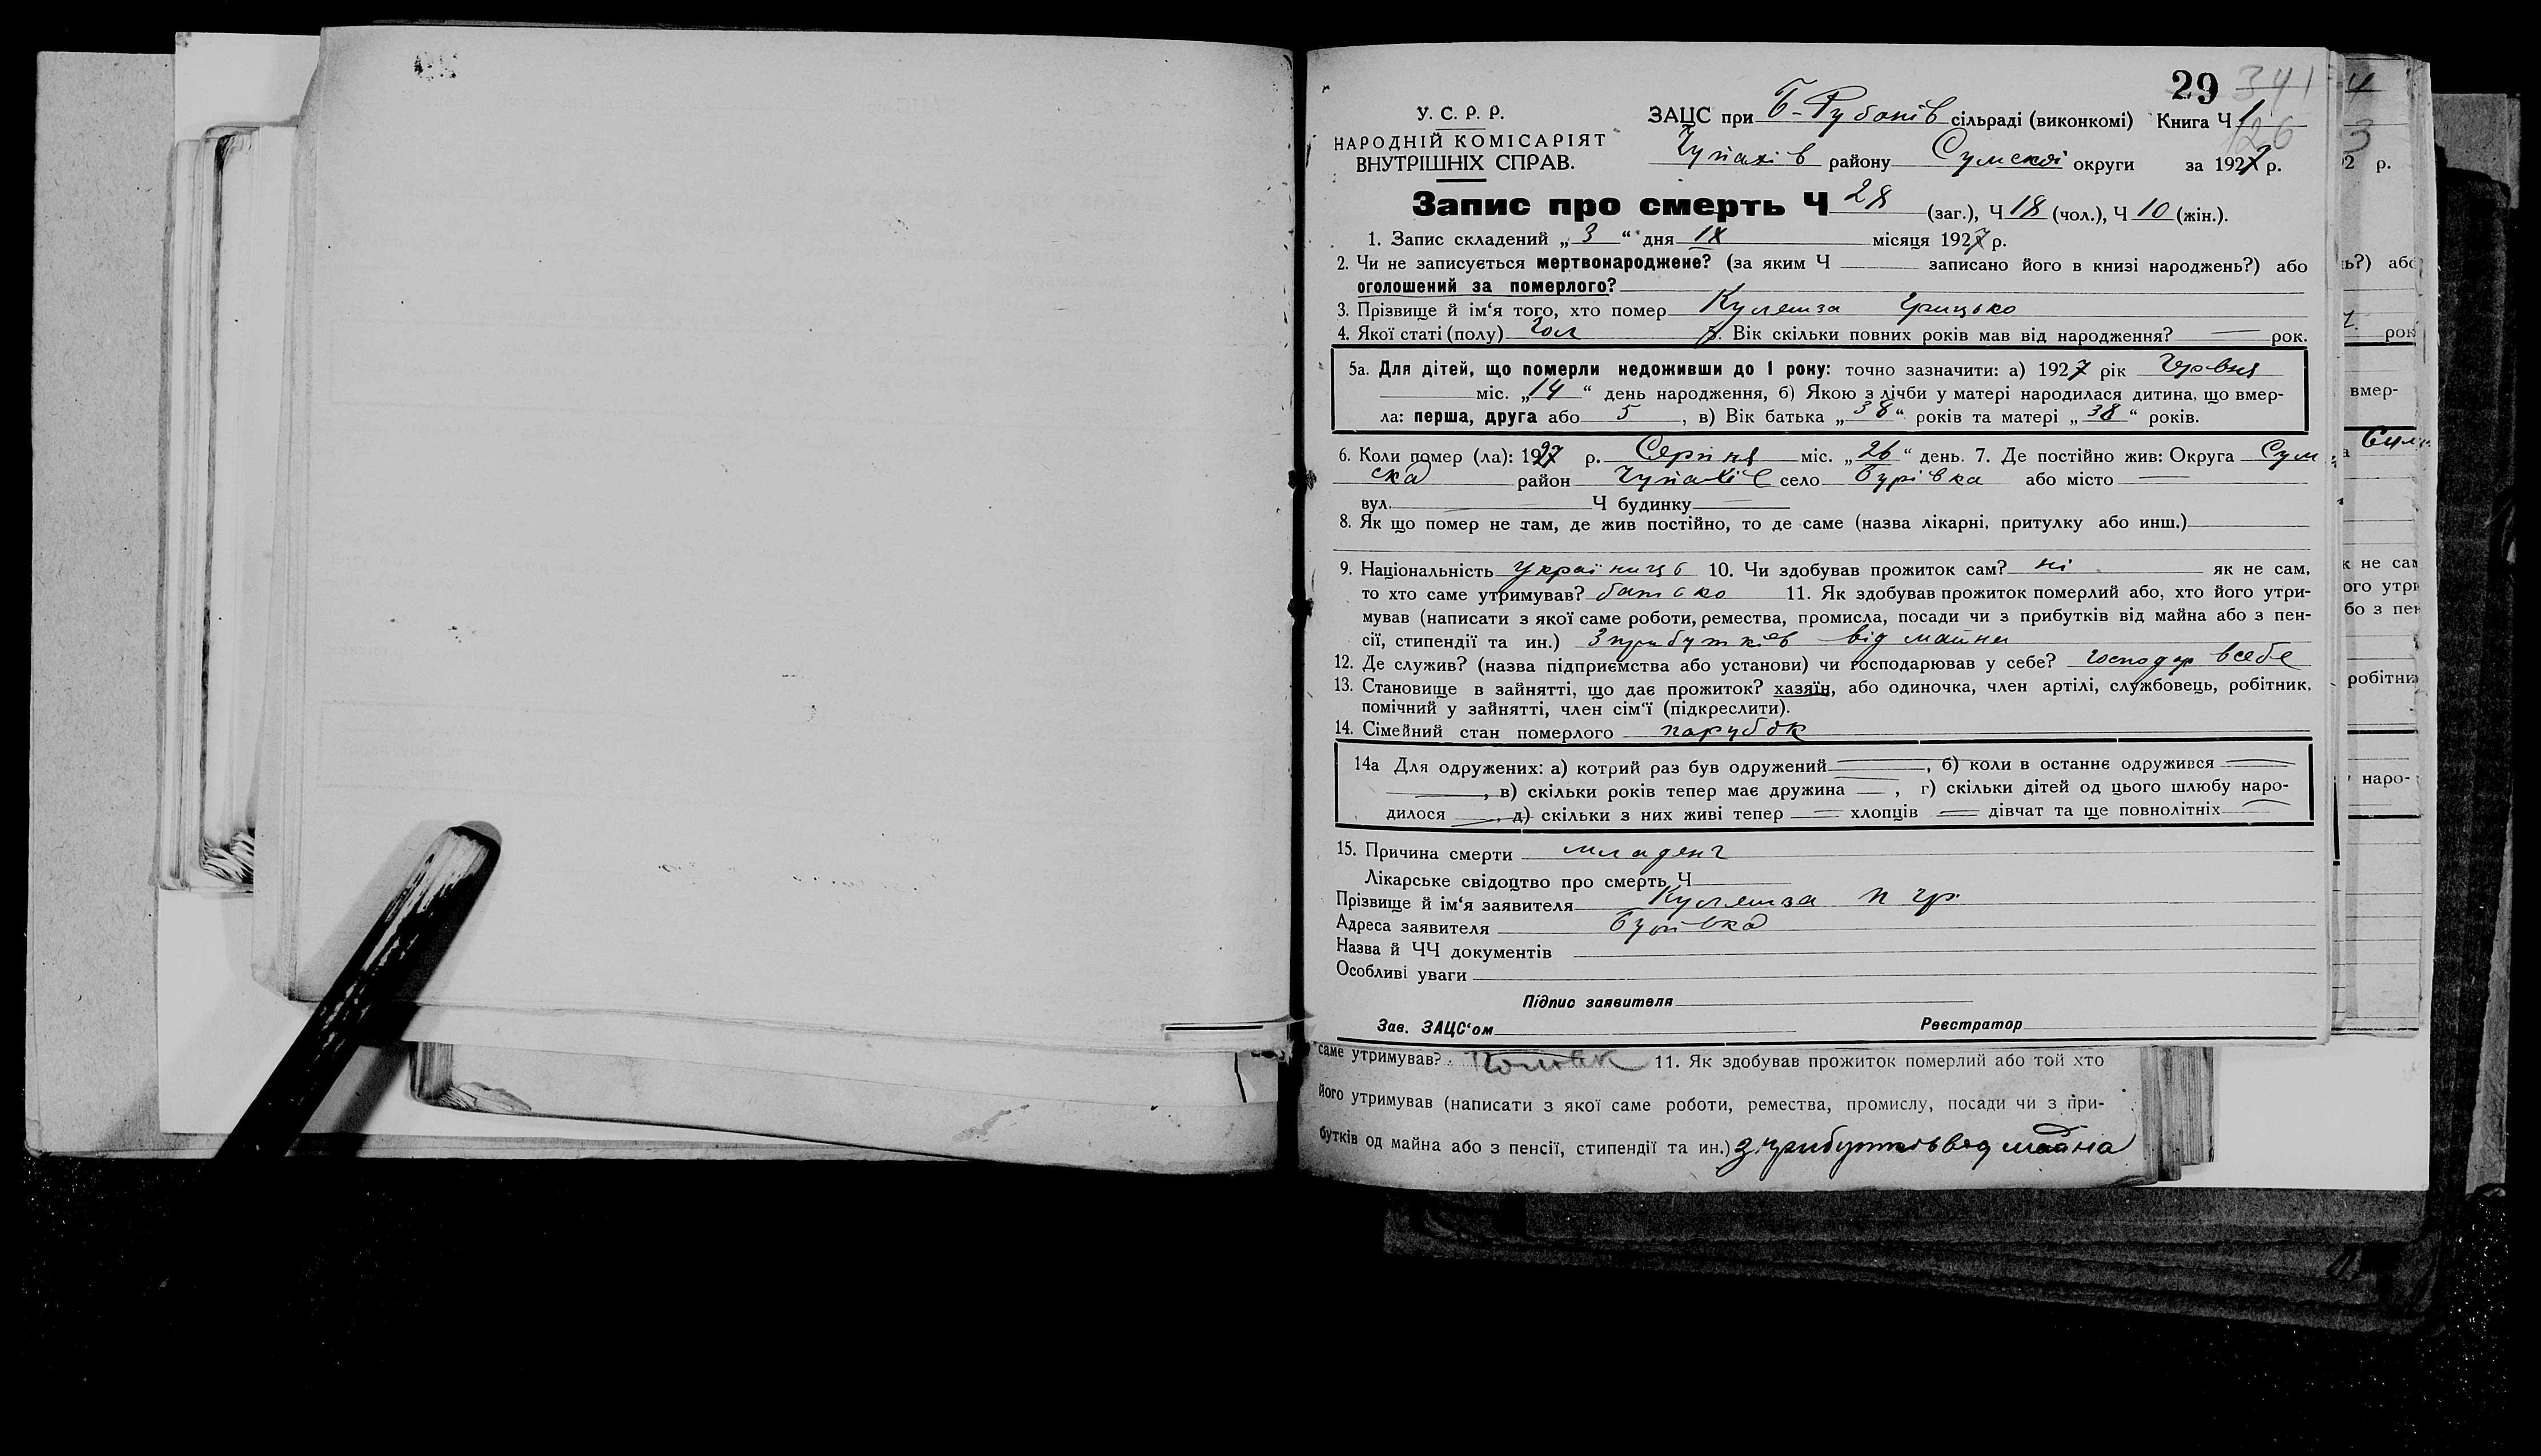 29 341
У. С. Р. Р.
НАРОДНІЙ КОМІСАРІЯТ
ВНУТРІШНІХ СПРАВ.
ЗАЦС при Б-Рубанів сільраді (виконкомі) Книга Ч 1
126
Чупахів району Сумской округи за 1927 р.
Запис про смерть Ч 28 (заг.), Ч 18 (чол.), Ч 10 (жін.).
1. Запис складений „ 3 “ дня IX місяця 1927 р.
2. Чи не записується мертвонароджене? (за яким Ч записано його в книзі народжень?) або
оголошений за померлого?
3. Прізвище й ім‘я того, хто помер Кулешза Грицько
4. Якої статі (полу) Чол 5. Вік скільки повних років мав від народження? — рок.
5а. Для дітей, що померли недоживши до 1 року: точно зазначити: а) 1927 рік Червня
міс. „ 14 “ день народження, б) Якою з лічби у матері народилася дитина, що вмер-
ла: перша, друга або 5 , в) Вік батька „ 38 “ років та матері „ 38 “ років.
6. Коли помер (ла): 1927 р. Серпня міс. „ 26 “ день. 7. Де постійно жив: Округа Сум
ска район Чупахів село Бурівка або місто —
вул. — Ч будинку —
8. Як що помер не там, де жив постійно, то де саме (назва лікарні, притулку або инш.)
9. Національність Українць 10. Чи здобував прожиток сам? ні як не сам,
то хто саме утримував? батько 11. Як здобував прожиток померлий або, хто його утри-
мував (написати з якої саме роботи, ремества, промисла, посади чи з прибутків від майна або з пен-
сії, стипендії та ин.) З прибутків від майна
12. Де служив? (назва підприємства або установи) чи господарював у себе? господар всебе
13. Становище в зайнятті, що дає прожиток? хазяїн, або одиночка, член артілі, службовець, робітник,
помічний у зайнятті, член сім‘ї (підкреслити).
14. Сімейний стан померлого парубок
14а Для одружених: а) котрий раз був одружений — , б) коли в останнє одружився —
— , в) скільки років тепер має дружина — , г) скільки дітей од цього шлюбу наро-
дилося — , д) скільки з них живі тепер — хлопців — дівчат та ще повнолітніх —
15. Причина смерти младенч
Лікарське свідоцтво про смерть Ч
Прізвище й ім‘я заявителя Кулешза П Гр.
Адреса заявителя Бурівка
Назва й ЧЧ документів
Особливі уваги
Підпис заявителя
Зав. ЗАЦС‘ом Реєстратор
саме утримував? 11. Як здобував прожиток померлий або той хто
його утримував (написати з якої саме роботи, ремества, промислу, посади чи з при-
бутків од майна або з пенсії, стипендії та ин.) з прибутків вод майна